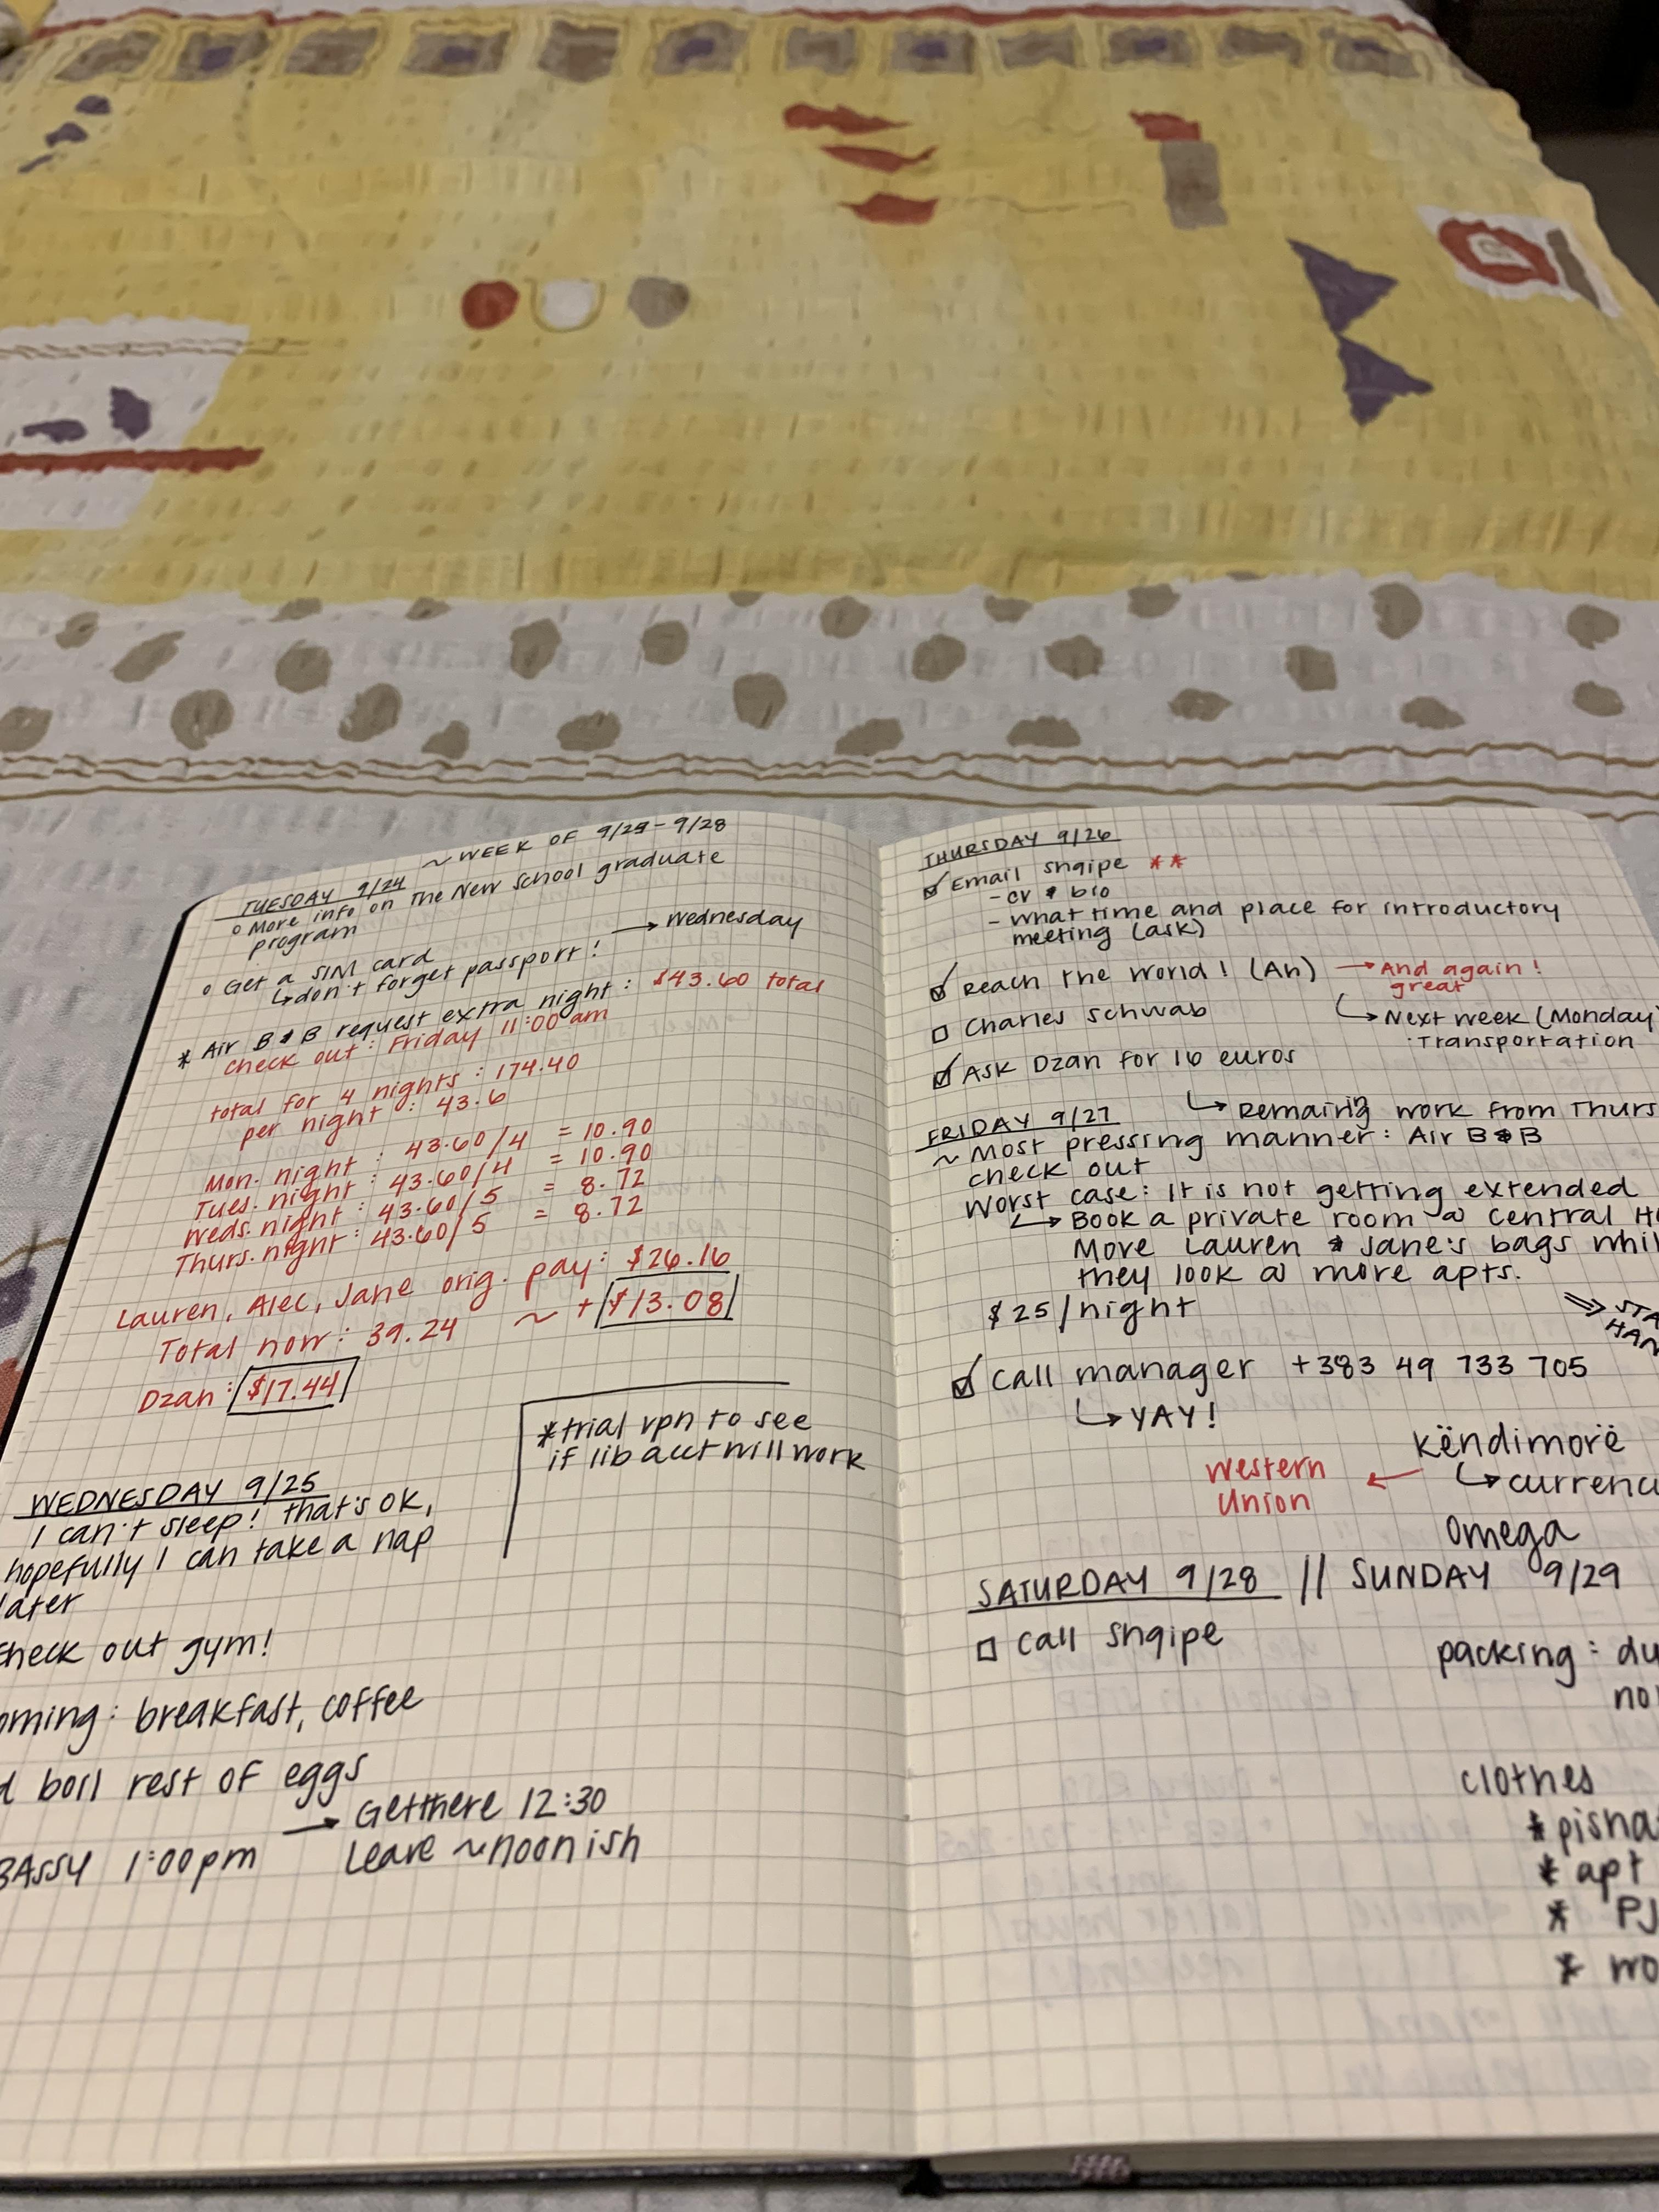 ~ WEEK OF 9/23 - 9/28
TUESDAY 9/24
○ More info on The New School graduate
program
○ Get a SIM card
↳ don't forget passport! → Wednesday
* Air B & B request extra night: $43.60 total
check out: Friday 11:00 am
total for 4 nights: 174.40
per night: 43.6
Mon. night: 43.60/4 = 10.90
Tues. night: 43.60/4 = 10.90
Weds. night: 43.60/5 = 8.72
Thurs. night: 43.60/5 = 8.72
Lauren, Alec, Jane orig. pay: $26.16
Total now: 39.24 ~ + $13.08
Dzan: $17.44
*trial vpn to see
if lib acct will work
WEDNESDAY 9/25
I can't sleep! that's ok,
hopefully I can take a nap
later
check out gym!
oming: breakfast, coffee
d boil rest of eggs
BASSY 1:00pm → Get there 12:30
Leave ~noonish
THURSDAY 9/26
☑ Email shqipe **
- cv & bio
- what time and place for introductory
meeting (ask)
☑ Reach the world! (An) → And again!
great
☐ Charles Schwab ↳ Next week (Monday
Transportation
☑ Ask Dzan for 16 euros
FRIDAY 9/27 ↳ Remairig work from Thurs
~ Most pressing manner: Air B & B
check out
Worst case: It is not getting extended
↳ Book a private room @ central H
Move Lauren & Jane's bags whil
they look @ more apts.
$25/night
⇒ STA
HAN
☑ call manager +383 49 733 705
↳ YAY!
Këndimorë
Western Union ← ↳ currenc
Omega
SATURDAY 9/28 // SUNDAY 9/29
☐ call shqipe
packing: du
no
clothes
* pisha
* apt
* PJ
* wo